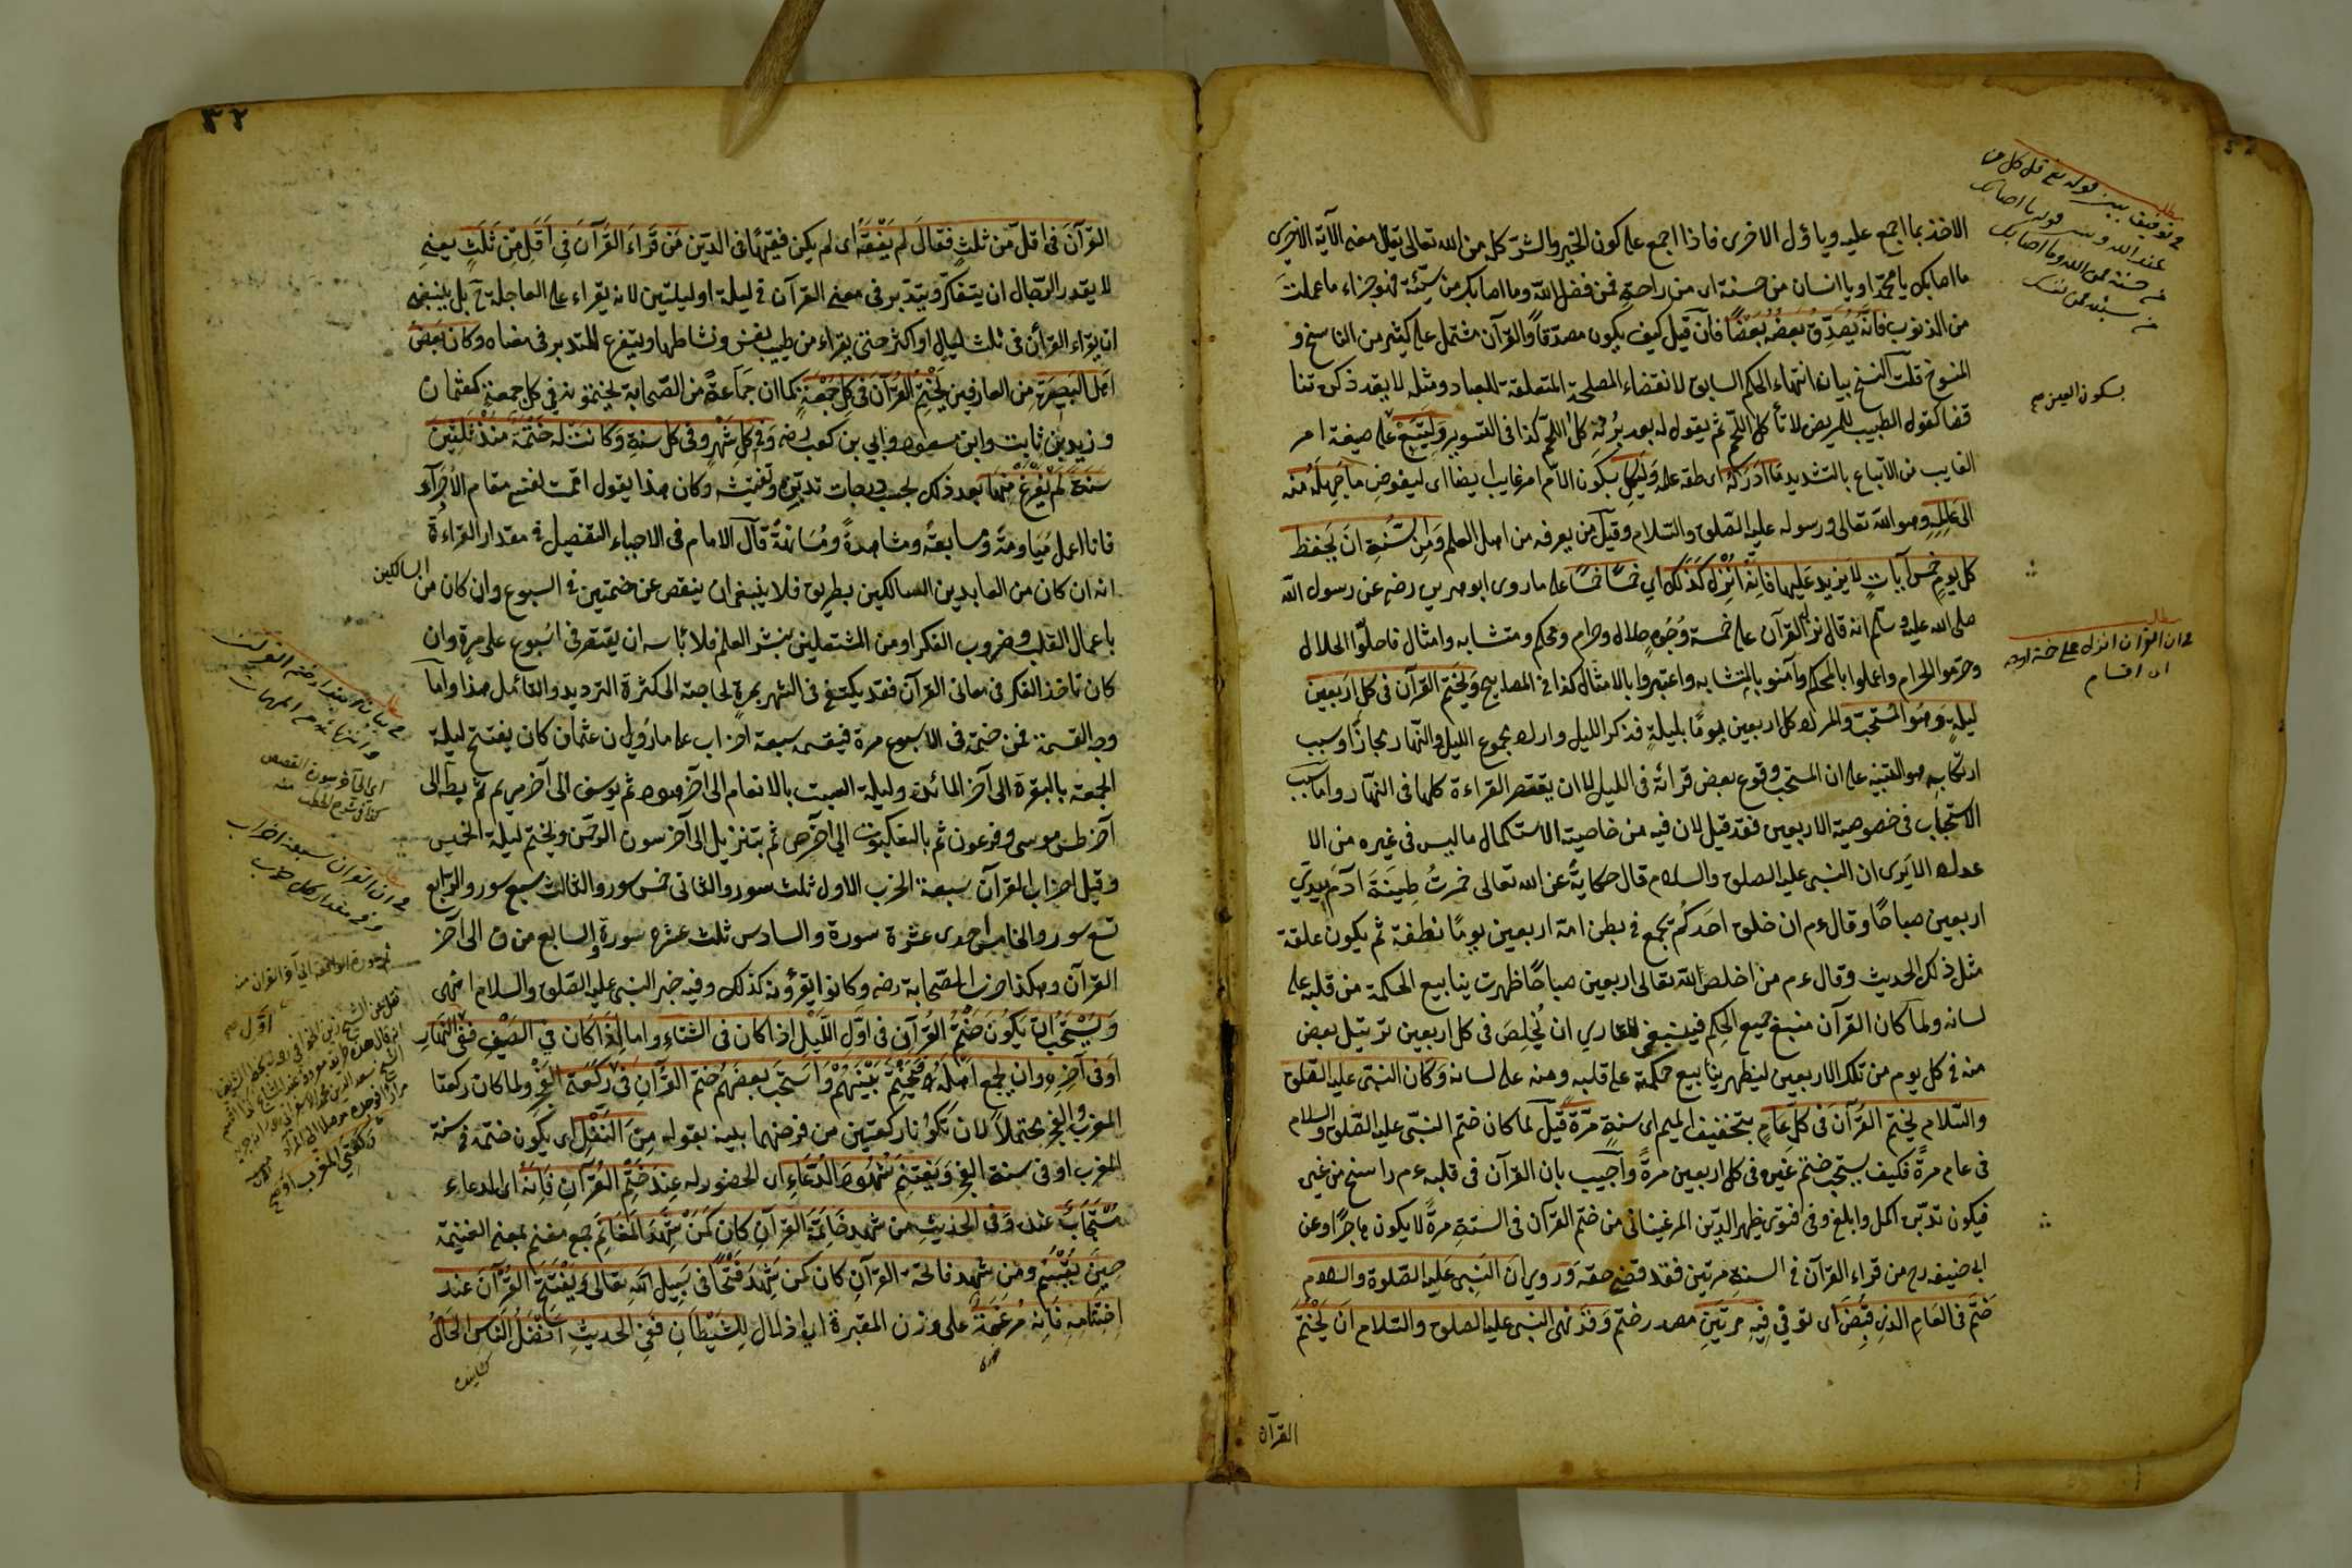 الاخذ بما اجمع عليه وياؤل الاخرى فاذا اجمع على كون الخير والشر كله من الله تعالى يقال معنى الآية الاخرى
ما اصابك يا محمد او يا انسان من حسنة اى من راحة فمن فضل الله وما اصابك من سيّئة فهو جزاء ما عملت
من الذنوب فانّه يُصَدِّقُ بَعضُهُ بَعْضًا فان قيل كيف يكون مصدّقا والقرآن مشتمل على كثير من الناسخ و
المنسوخ قلت النسخ بيان انتهاء الحكم السابق لانقضاء المصلحة المتعلقة للعباد ومثله لا يعد ذكره تنا
قضا كقول الطبيب للمريض لا تأكل اللحم ثم يقول له بعد برئه كل اللحم كذا فى التيسير وليتبع على صيغة امر
الغايب من الاتباع بالتشديد ما ادركه اى طقه علمه وليكل بسكون اللام امر غايب ايضا اى ليفوض ما جهله منه
الى عالمه وهو الله تعالى ورسوله عليه الصّلوة والسّلام وقيل من يعرفه من اهل العلم ومن السُّنة ان يحفظ
كل يوم خمس آيات لا يزيد عليها فانه اُنْزِلَ كَذَلِكَ اى خمسًا خمسًا على ما روى ابو هريرة رضه عن رسول الله
صلى الله عليه وسلم انه قال نزل القرآن على خمسة وُجُوه حلال وحرام ومحكم ومتشابه وامثال فاحلّوا الحلال
وحرّموا الحرام واعملوا بالمحكم وآمنوا بالمتشابه واعتبروا بالامثال كذا فى المصابيح ويختم القرآن فى كل اربعين
ليلة وهو المُستحبّ والمراد كل اربعين يومًا بليلة فذكر الليل واراد مجموع الليل والنّهار مجازًا وسبب
ارتكابه هو التنبيه على ان المستحب وقوع بعض قرائة فى الليل لا ان يقتصر القراءة كلها فى النّهار واما سبب
الاستحباب فى خصوصية الاربعين فقد قيل لان فيه من خاصية الاستكمال ما ليس فى غيره من الا
عداد الا يرى ان النبى عليه الصلوة والسلام قال حكاية عن الله تعالى خمرتُ طِينَةَ آدم بيدي
اربعين صباحًا وقال ءم ان خلق احدكم يجمع فى بطن امه اربعين يومًا نطفة ثم يكون علقة
مثل ذلك الحديث وقال ءم من اخلص لله تعالى اربعين صباحًا ظهرت ينابيع الحكمة من قلبه على
لسانه ولما كان القرآن منبع جميع الحِكم فينبغى للقاري ان يُخلِصَ فى كل اربعين ترتيل بعض
منه فى كل يوم من تلك الاربعين ليظهر ينابيع حكمة على قلبه ومنه على لسانه وكان النبى عليه الصلوة
والسّلام يختم القرآن فى كل عام بتخفيف الميم اى سنة مرّة قيل لما كان ختم النبّى عليه الصّلوة والسلام
فى عام مرةً فكيف يستحب ختم غيره فى كل اربعين مرةً واُجيب بان القرآن فى قلبه ءم راسخ من غيره
فيكون تدبّره اكمل وابلغ وفى فتوى ظهير الدّين المرغينانى من ختم القرآن فى السنة مرةً لا يكون هاجرًا وعن
ابى حنيفه رح من قراء القرآن فى السنة مرتين فقد قضى حقه وروي ان النبى عليه الصّلوة والسلام
خَتَمَ فى العام الذى قُبِضَ اى توفي فيه مرتين مصدر ختم وقد نهى النبى عليه الصلوة والسّلام ان يختم
القرآن
مطلب
فى توفيق بين قوله تع قل كل من
عند الله وبين قوله ما اصابك
من حسنة فمن الله وما اصابك
من سيئة فمن نفسك
بسكون العين ص
مطلب
فى ان القرآن انزل على خمسة اوجه
اى اقسام
٣٢
القرآن فى اقلّ من ثلث فقال لم يَفْقَهْ اى لم يكن فقيهًا فى الدّين من قراء القرآن فى اقل من ثلث يعنى
لا يقدر الرّجال ان يتفكر ويتدبر فى معنى القرآن فى ليلة او ليلتين لانه يقراء على العاجلة ح بل ينبغى
ان يقراء القرأن فى ثلث ليال او اكثر حتى يقراء من طيب نفس ونشاطها ويتفرغ للتدبر فى معناه وكان بعض
اهل البصيرة من العارفين يختم القرآن فى كل جمعة كما ان جماعةً من الصّحابة يختمونه فى كل جمعة كعثمان
وزيد بن ثابت وابن مسعود وابي بن كعب رضه وفى كل شهر وفى كل سنة وكانت له ختمة منذ ثلثين
سنة لم يفرغ منها بعد ذلك بحسب درجات تدبّره وتفتيشه وكان هذا يقول اقمت نفسى مقام الاُجَراء
فانا اعمل مياومة ومسابعة ومشاهرةً ومُسانهةً قال الامام فى الاحياء التفصيل فى مقدار القراءة
انه ان كان من العابدين السالكين بطريق فلا ينبغى ان ينقص عن ختمتين فى اسبوع وان كان من السالكين
باعمال القلب وضروب الفكر او من المشتغلين بنشر العلم فلا بأس ان يقتصر فى اُسبوع على مرة وان
كان نافذ الفكر فى معانى القرآن فقد يكتفى فى الشهر بمرةٍ لحاجته الى كثرة الترديد والتأمل هذا واما
وجه القسمة فمن ختمه فى الاسبوع مرة فيقسمه سبعة احزاب على ما روى ان عثمان كان يفتتح ليلة
الجمعة بالبقرة الى آخر المائدة وليلة السبت بالانعام الى آخر هود ثم يوسف الى آخر مريم ثم بطه الى
آخر طسم موسى وفرعون ثم بالعنكبوت الى آخر ص ثم بتنزيل الى آخر سورة الرحمن ويختم ليلة الخميس
وقيل احزاب القرآن سبعة الحزب الاول ثلث سور والثانى خمس سور والثالث سبع سور والرّابع
تسع سور والخامس احدى عشرة سورة والسادس ثلث عشره سورة والسابع من ق الى آخر
القرآن وهكذا حزب الصّحابة رضه وكانوا يقرؤنه كذلك وفيه خبر النبى عليه الصّلوة والسلام انتهى
ويُستحبّ ان يكون ختم القرآن فى اول اللّيل اذا كان فى الشتاء واما اذا كان في الصّيف ففى النهار
او فى آخره وان يجمع اهله فيختم بينهم واستحب بعضهم ختم القرآن فى ركعتى الفجر ولما كان ركعتا
المغرب والفجر محتملاً لان تكونا ركعتين من فرضهما بينه بقوله من النفل اى يكون ختمه فى سنة
المغرب او فى سنة الفجر ويغتنم شهود الدّعاء اى الحضور له عند ختم القرآن فانه اى الدعاء
مستجاب عنده وفى الحديث من شهد خاتمة القرآن كان كمن شهد المغانم جمع مغنم بمعنى الغنيمة
حين يُقْسَم ومن شهد فاتحة القرآن كان كمن شهد فتحًا فى سبيل الله تعالى ويفتتح القرآن عند
اختتامه فانه مُرغمة على وزن المقبرة اى اذلال للشيطان ففى الحديث افضل الناس الحالّ
اى الى آخر سورة القصص
مطلب
فى ان القرآن سبعة احزاب
وفى مقدار كل حزب